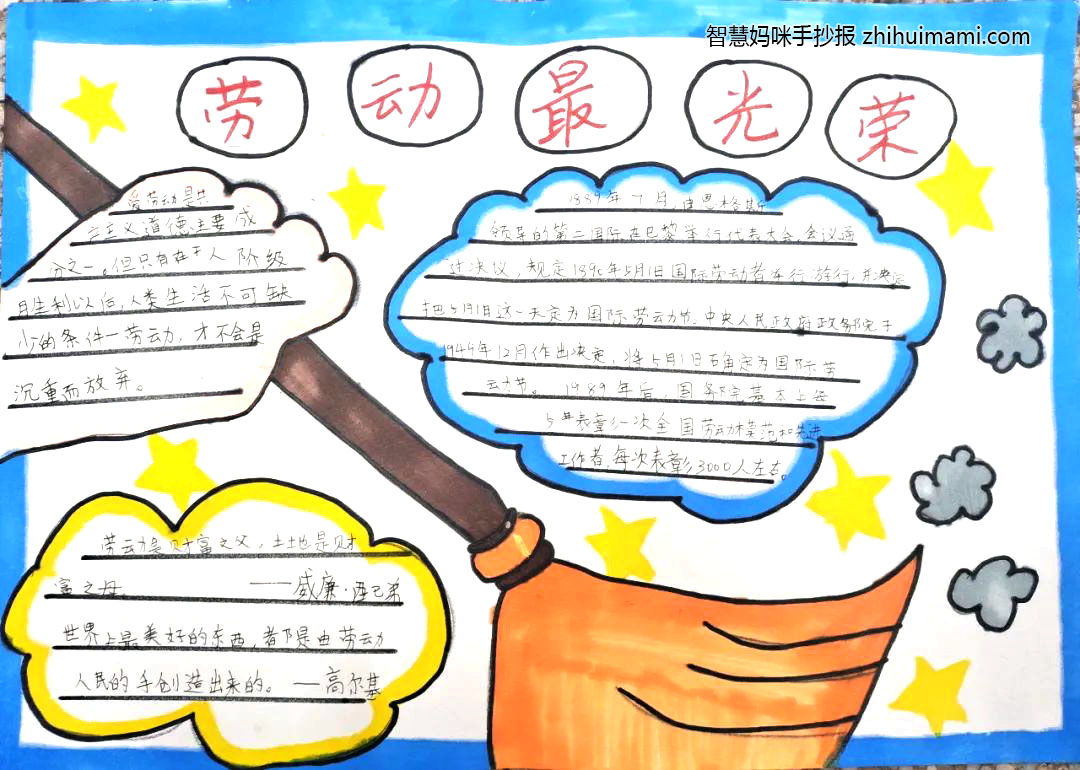 智慧妈咪手抄报 zhihuimami.com
劳动最光荣
爱劳动是共
主义道德主要成
分之一。但只有在工人阶级
胜利以后,人类生活不可缺
少的条件一劳动,才不会是
沉重而放弃。
1889年7月,由恩格斯
领导的第二国际在巴黎举行代表大会,会议通
过决议,规定1890年5月1日国际劳动者举行游行,并决定
把5月1日这一天定为国际劳动节。中央人民政府政务院于
1949年12月作出决定,将5月1日确定为国际劳
动节。1989年后,国务院基本上每
5年表彰一次全国劳动模范和先进
工作者,每次表彰3000人左右。
劳动是财富之父,土地是财
富之母。 ——威廉·配第
世界上最美好的东西,都是由劳动
人民的手创造出来的。 —高尔基